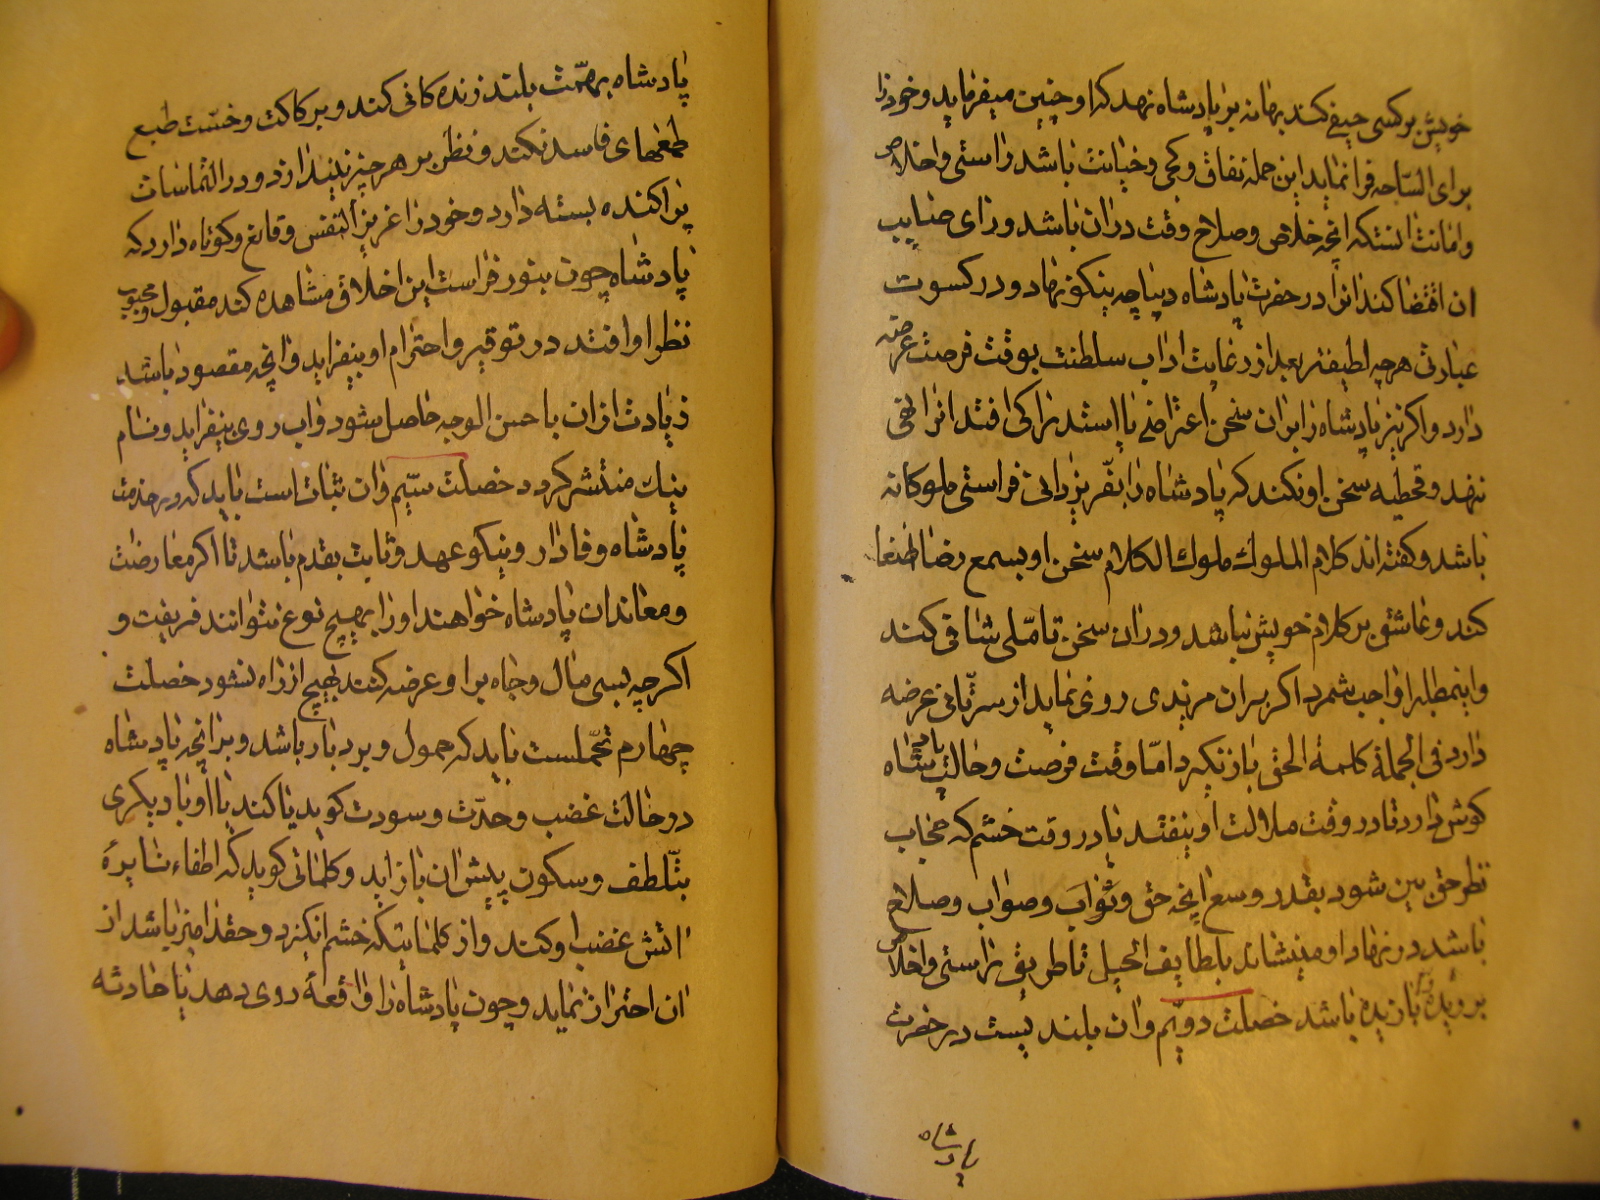 خویش بر کسی حیفی کند بهانه بر پادشاه نهد که او چنین میفرماید و خود را
برای السّاحه فرا نماید این جمله نفاق و کجی و خیانت باشد راستی و اخلاص
و امانت انستکه انچه خلاص و صلاح وقت دران باشد و رای صایب
ان اقتضا کند انرا در حضرت پادشاه دیباچه نیکو نهاد و در کسوت
عبارتی هرچه لطیفتر بعد از رعایت اداب سلطنت بوقت فرصت عرضه
دارد و اکر نیز پادشاه را بران سخن اعتراضی یا استدراکی افتد انرا نفی
ننهد و تخطیه سخن او نکند که پادشاه را بفّر یزدانی فراستی ملوکانه
باشد و کفته اند کلام الملوك ملوك الکلام سخن او بسمع رضا اصغا
کند و عاشق بر کلام خویش نباشد و دران سخن تامّلی شافی کند
و اینمطلبرا واجب شمرد اکر بران مزیدی روی نماید از سر تأنی عرضه
دارد فی الجملة کلمة الحق باز نکیرد امّا وقت فرصت و حالت پادشاه
کوش دارد تا در وقت ملالت او نیفتد یا در وقت خشم که حجاب
نظر حق بین شود بقدر وسع انچه حق و ثواب و صواب و صلاح
باشد در نهاد او مینشاند بلطایف الحیل تا طریق راستی و اخلاص
برزیده باشد خصلت دویّم وان بلند یست در حضرت
پادشاه
پادشاه بهمّت بلند زنده کانی کند و بر کاکت و خسّت طبع
طمعهای فاسد نکند و نظر بر هر چیز نیندازد و در التماسات
پراکنده بسته دارد و خود را عزیز النفس و قانع و کوتاه دارد که
پادشاه چون بنور فراست این اخلاق مشاهده کند مقبول و محبوب
نظر او افتد در توقیر و احترام او بیفزاید و انچه مقصود باشد
زیادت از ان باحسن الوجه حاصل شود و اب روی بیفزاید و نام
نیك منتشر کردد خصلت سیّم وان ثبات است باید که در خدمت
پادشاه وفادار و نیکو عهد و ثابت بقدم باشد تا اکر معارضان
و معاندان پادشاه خواهند او را بهیچ نوع نتوانند فریفت و
اکرچه بسی مال و جاه برا و عرضه کنند بهیچ از راه نشود خصلت
چهارم تحّملست باید که حمول و بردبار باشد و برانچه پادشاه
در حالت غضب و حدّت و سورت کوید یا کند با او یا دیکری
بتّلطف و سکون پیش ان باز اید و کلماتی کوید که اطفاء نایرهٔ
اتش غضب او کند و از کلماتیکه خشم انکیزد و حقد امیز باشد از
ان احتراز نماید و چون پادشاه را واقعهٔ روی دهد یا حادثه